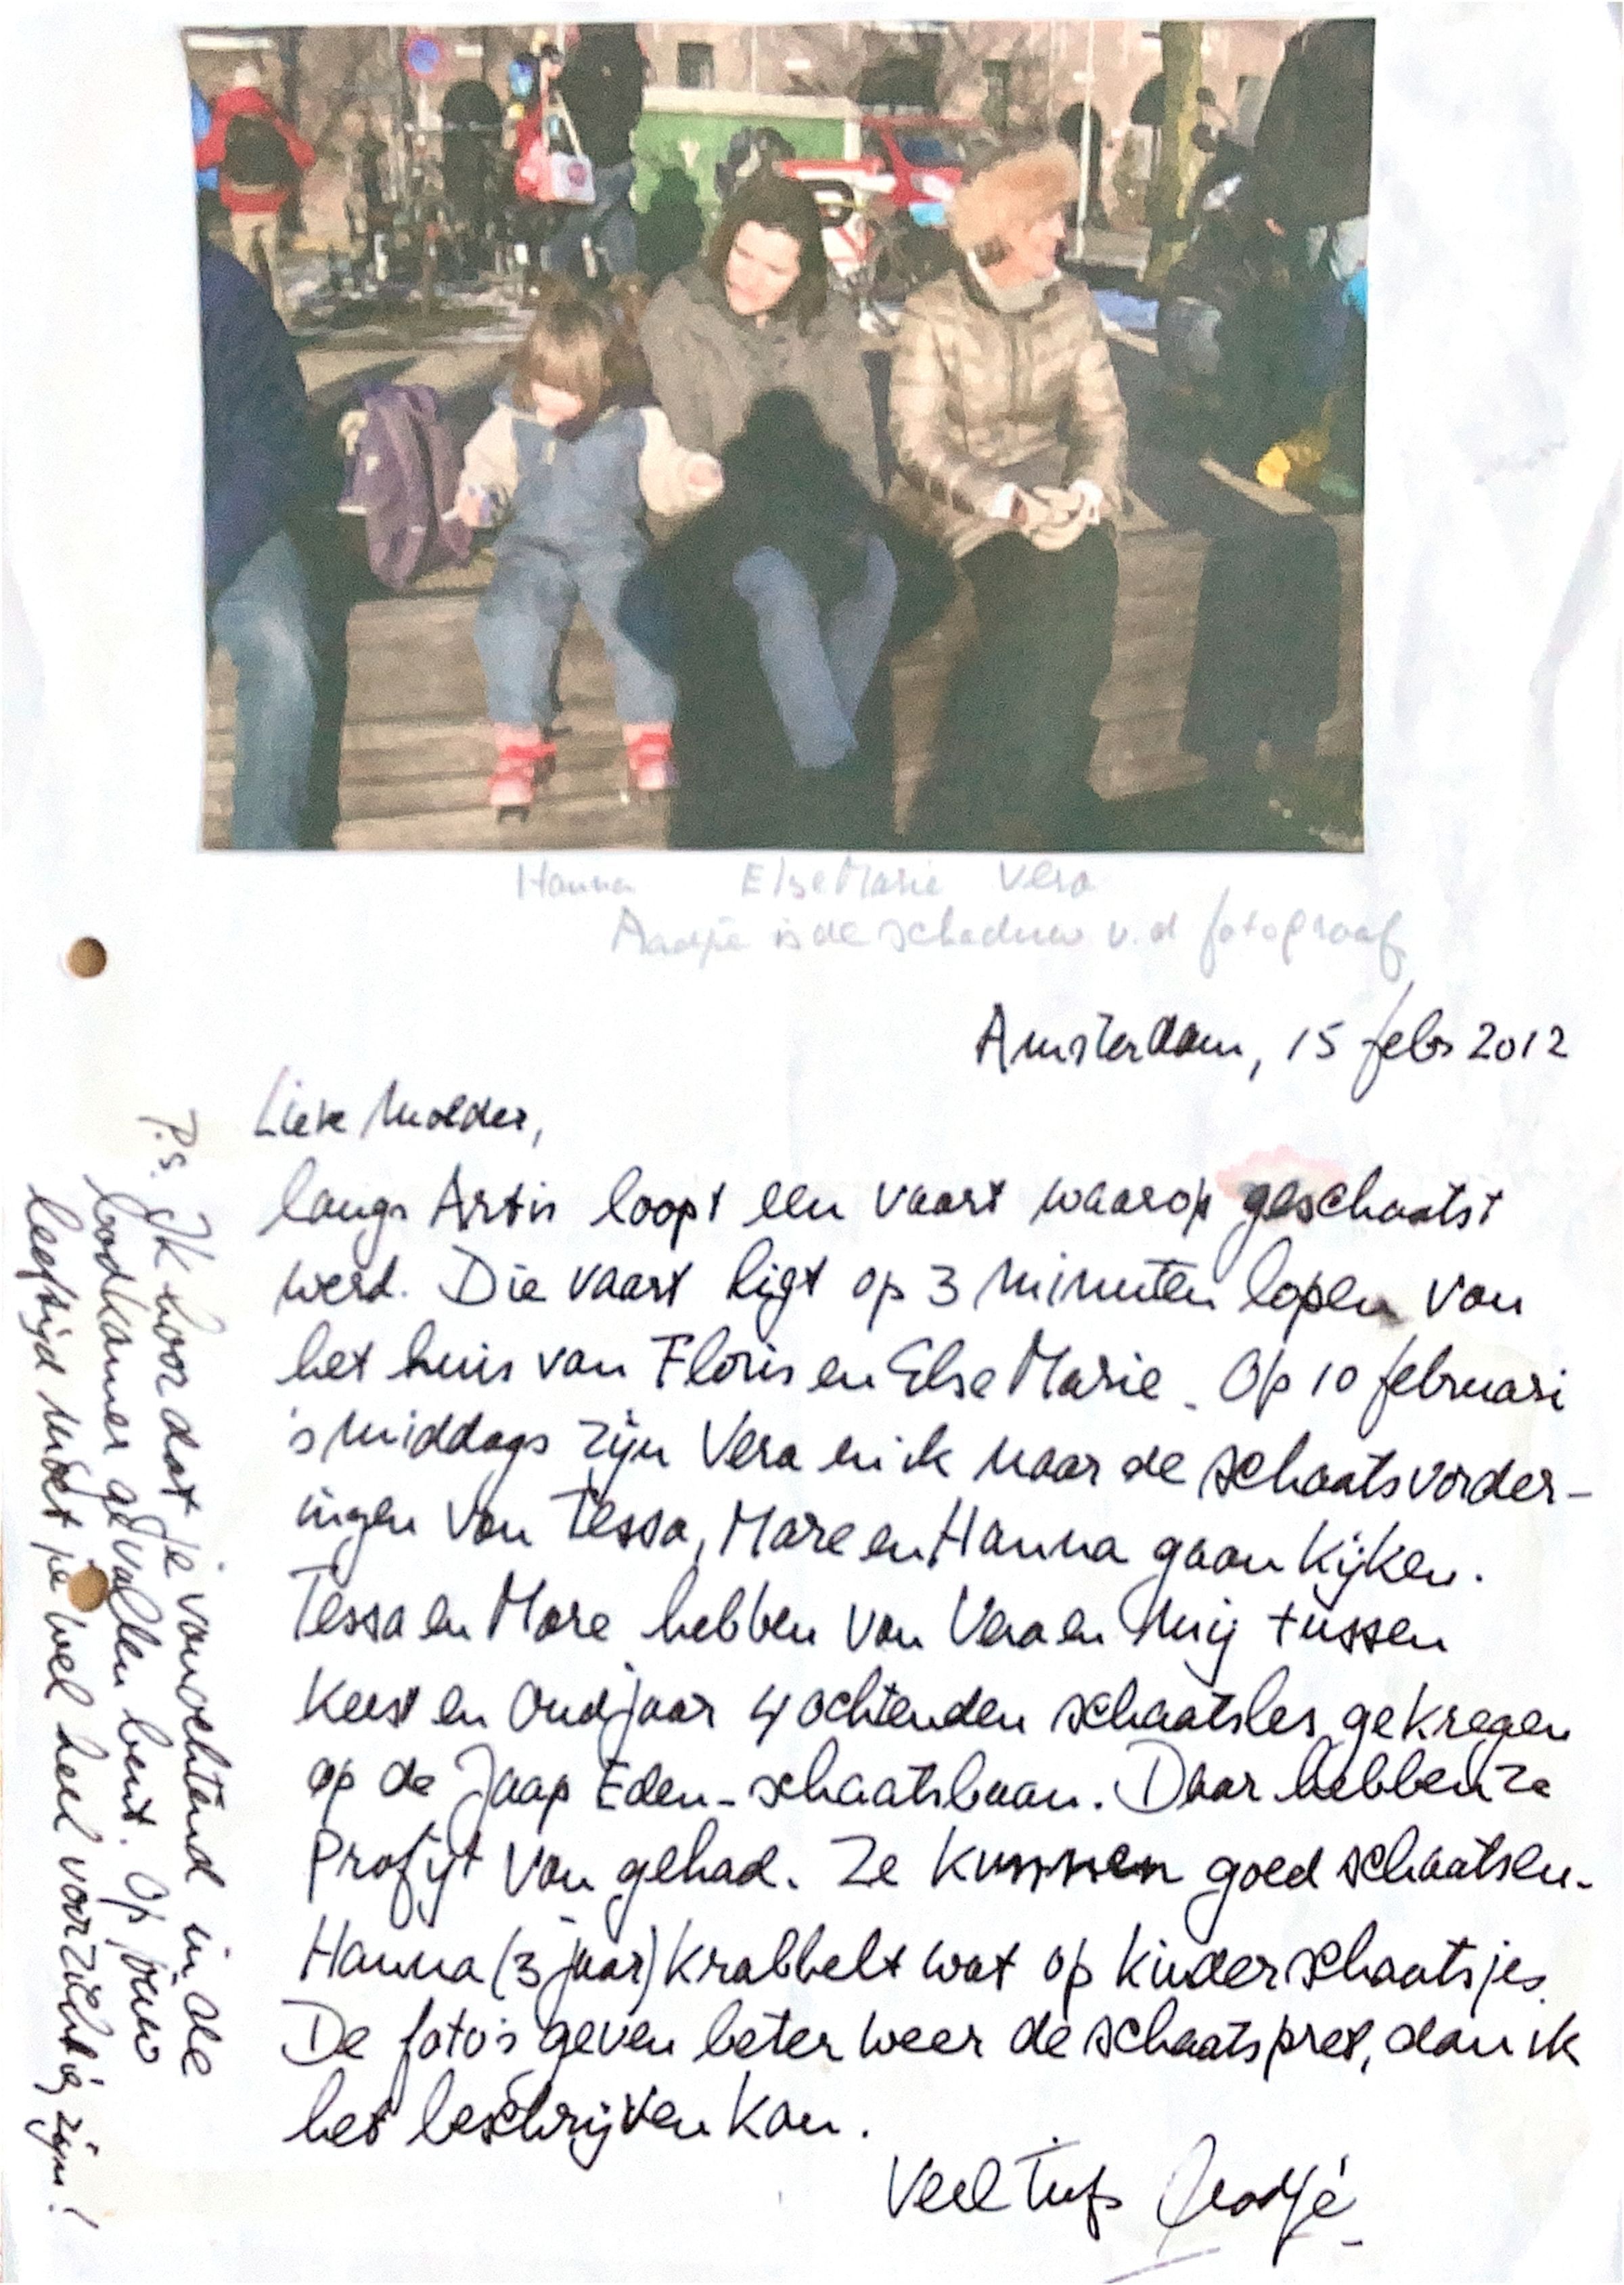 Hanna ElseMarie Vera
Aadje is de schaduw v.d fotograaf
Amsterdam, 15 febr 2012
Lieve Moeder,
langs Artis loopt een vaart waarop geschaatst
werd. Die vaart ligt op 3 minuten lopen van
het huis van Floris en Else Marie. Op 10 februari
's middags zijn Vera en ik naar de schaatsvorder-
ingen van Tessa, Mare en Hanna gaan kijken.
Tessa en Mare hebben van Vera en mij tussen
Kerst en Oudjaar 4 ochtenden schaatsles gekregen
op de Jaap Eden-schaatsbaan. Daar hebben ze
Profijt van gehad. Ze kunnen goed schaatsen.
Hanna (3 jaar) krabbelt wat op kinderschaatsjes.
De foto's geven beter weer de schaatspret, dan ik
het beschrijven kan.
Veel liefs Aadjé
P.S. Ik hoor dat je vanochtend in de
badkamer gevallen bent. Op jouw
leeftijd moet je wel heel voorzichtig zijn!